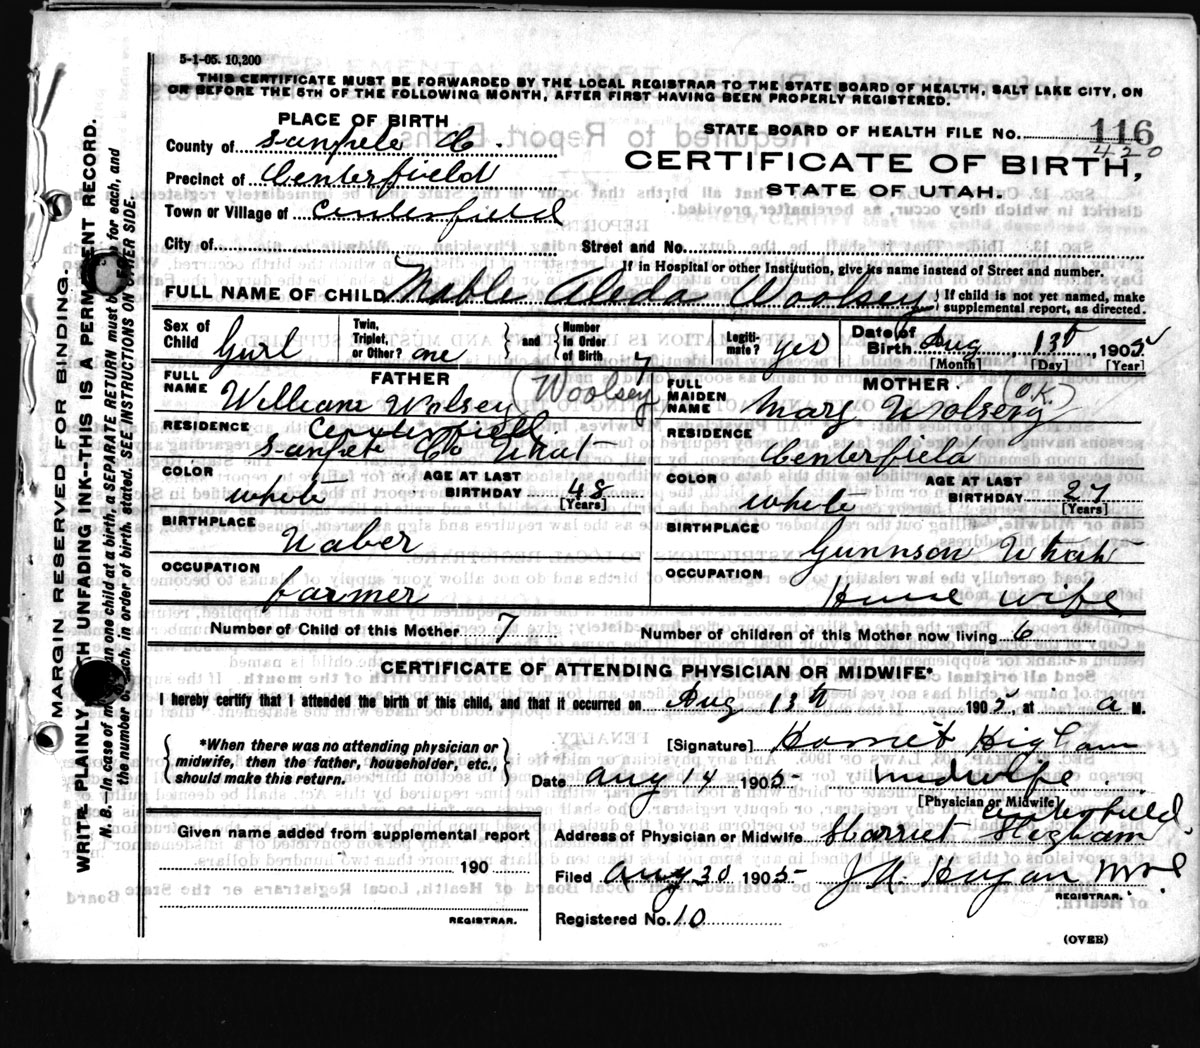 5-1-05. 10,200
THIS CERTIFICATE MUST BE FORWARDED BY THE LOCAL REGISTRAR TO THE STATE BOARD OF HEALTH, SALT LAKE CITY, ON
OR BEFORE THE 5TH OF THE FOLLOWING MONTH, AFTER FIRST HAVING BEEN PROPERLY REGISTERED.
PLACE OF BIRTH
County of Sanpete Co.
Precinct of Centerfield
Town or Village of Centerfield
City of
STATE BOARD OF HEALTH FILE No. 116
420
CERTIFICATE OF BIRTH,
STATE OF UTAH.
Street and No.
If in Hospital or other Institution, give its name instead of Street and number.
FULL NAME OF CHILD Mable Aleda Woolsey
If child is not yet named, make
supplemental report, as directed.
Sex of Child Gurl
Twin, Triplet, or Other? one
and
Number in Order of Birth 7
Legitimate? yes
Date of Birth Aug 13th, 1905
[Month] [Day] [Year]
FATHER
FULL NAME William Wolsey (Woolsey)
RESIDENCE Centerfield
Sanpet Co Utat
COLOR white
AGE AT LAST BIRTHDAY 48
[Years]
BIRTHPLACE
OCCUPATION
farmer
MOTHER
FULL MAIDEN NAME Mary Wolsery (O.K.)
RESIDENCE
Centerfield
COLOR white
AGE AT LAST BIRTHDAY 27
[Years]
BIRTHPLACE
Gunnson Utah
OCCUPATION
House wife
Number of Child of this Mother 7
Number of children of this Mother now living 6
CERTIFICATE OF ATTENDING PHYSICIAN OR MIDWIFE*
I hereby certify that I attended the birth of this child, and that it occurred on Aug 13th 1905, at a M.
*When there was no attending physician or
midwife, then the father, householder, etc.,
should make this return.
[Signature] Harriet Higham
Date Aug 14 1905 midwife
[Physician or Midwife]
Centerfield
Address of Physician or Midwife Harriet Higham
Given name added from supplemental report
190
REGISTRAR.
Filed Aug 30 1905 J A Hagan
REGISTRAR.
Registered No. 10
(OVER)
MARGIN RESERVED FOR BINDING.
WRITE PLAINLY WITH UNFADING INK--THIS IS A PERMANENT RECORD.
N. B.—In case of more than one child at a birth, a SEPARATE RETURN must be made for each, and
the number of each, in order of birth, stated. SEE INSTRUCTIONS ON OTHER SIDE.